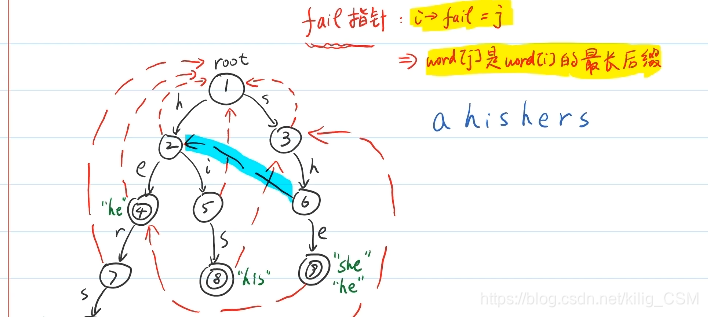 fail指针：i→fail = j
⇒ word[j]是word[i]的最长后缀
root
1
h
s
a h i s h e r s
2
3
e
i
h
"he"
4
5
6
r
s
e
7
8
"his"
9
"she"
"he"
s
https://blog.csdn.net/kilig_CSM